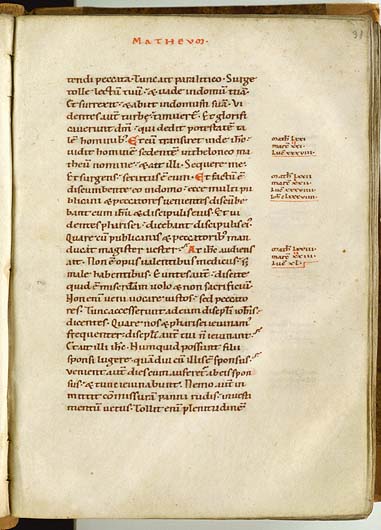 31
MATHEUM.
tendi peccata. Tunc ait paralitico. Surge
tolle lectū tuū. & uade indomum tuā.
Et surrexit. & abiit indomum suā. Vi
dentes autē turbę. timuerť. Et glorifi
cauerunt dm̄. qui dedit potestatē ta
lē hominib; Et cū transiret inde ihc̄.
uidit hominē sedentē intheloneo ma
theū nomine. & ait illi. Sequere me.
Et surgens. secutus ē eum. Et factū ē
discumbente eo indomo. ecce multi pu
blicani & peccatores uenientes discūbe
bant cum ihū & discipulis ei. Et ui
dentes pharisei. dicebant discipulis ei.
Quare cū publicanis & peccatorib; man
ducat magister uester. At ihc̄ audiens
ait. Non ē opus ualentibus medicus. s;
male habentibus. Euntes autē. discite
quid ē misericordiam uolo & non sacrificiū.
Non enī ueni uocare iustos. sed peccato
res. Tunc accesserunt ad eum discipli iohis
dicentes. Quare nos & pharisei ieiunam;
frequenter. discipli autē tui n̄ ieiunant.
Et ait illi ihc̄. Numquid possunt filii
sponsi lugere. quā diu cū illis ē sponsus.
venient autē dies cum auferet ab eis spon
sus. & tunc ieiunabunt. Nemo autē in
mittit cōmissurā panni rudis. inuesti
mentū uetus. Tollit enī plenitudinē
math̄ LXXI
marc̄ XXI.
luc̄ XXXVIII.
math̄ LXXII
marc̄ XXII.
luc̄ XXXVIIII.
math̄ LXXIII
marc̄ XXIII.
luc̄ XL.